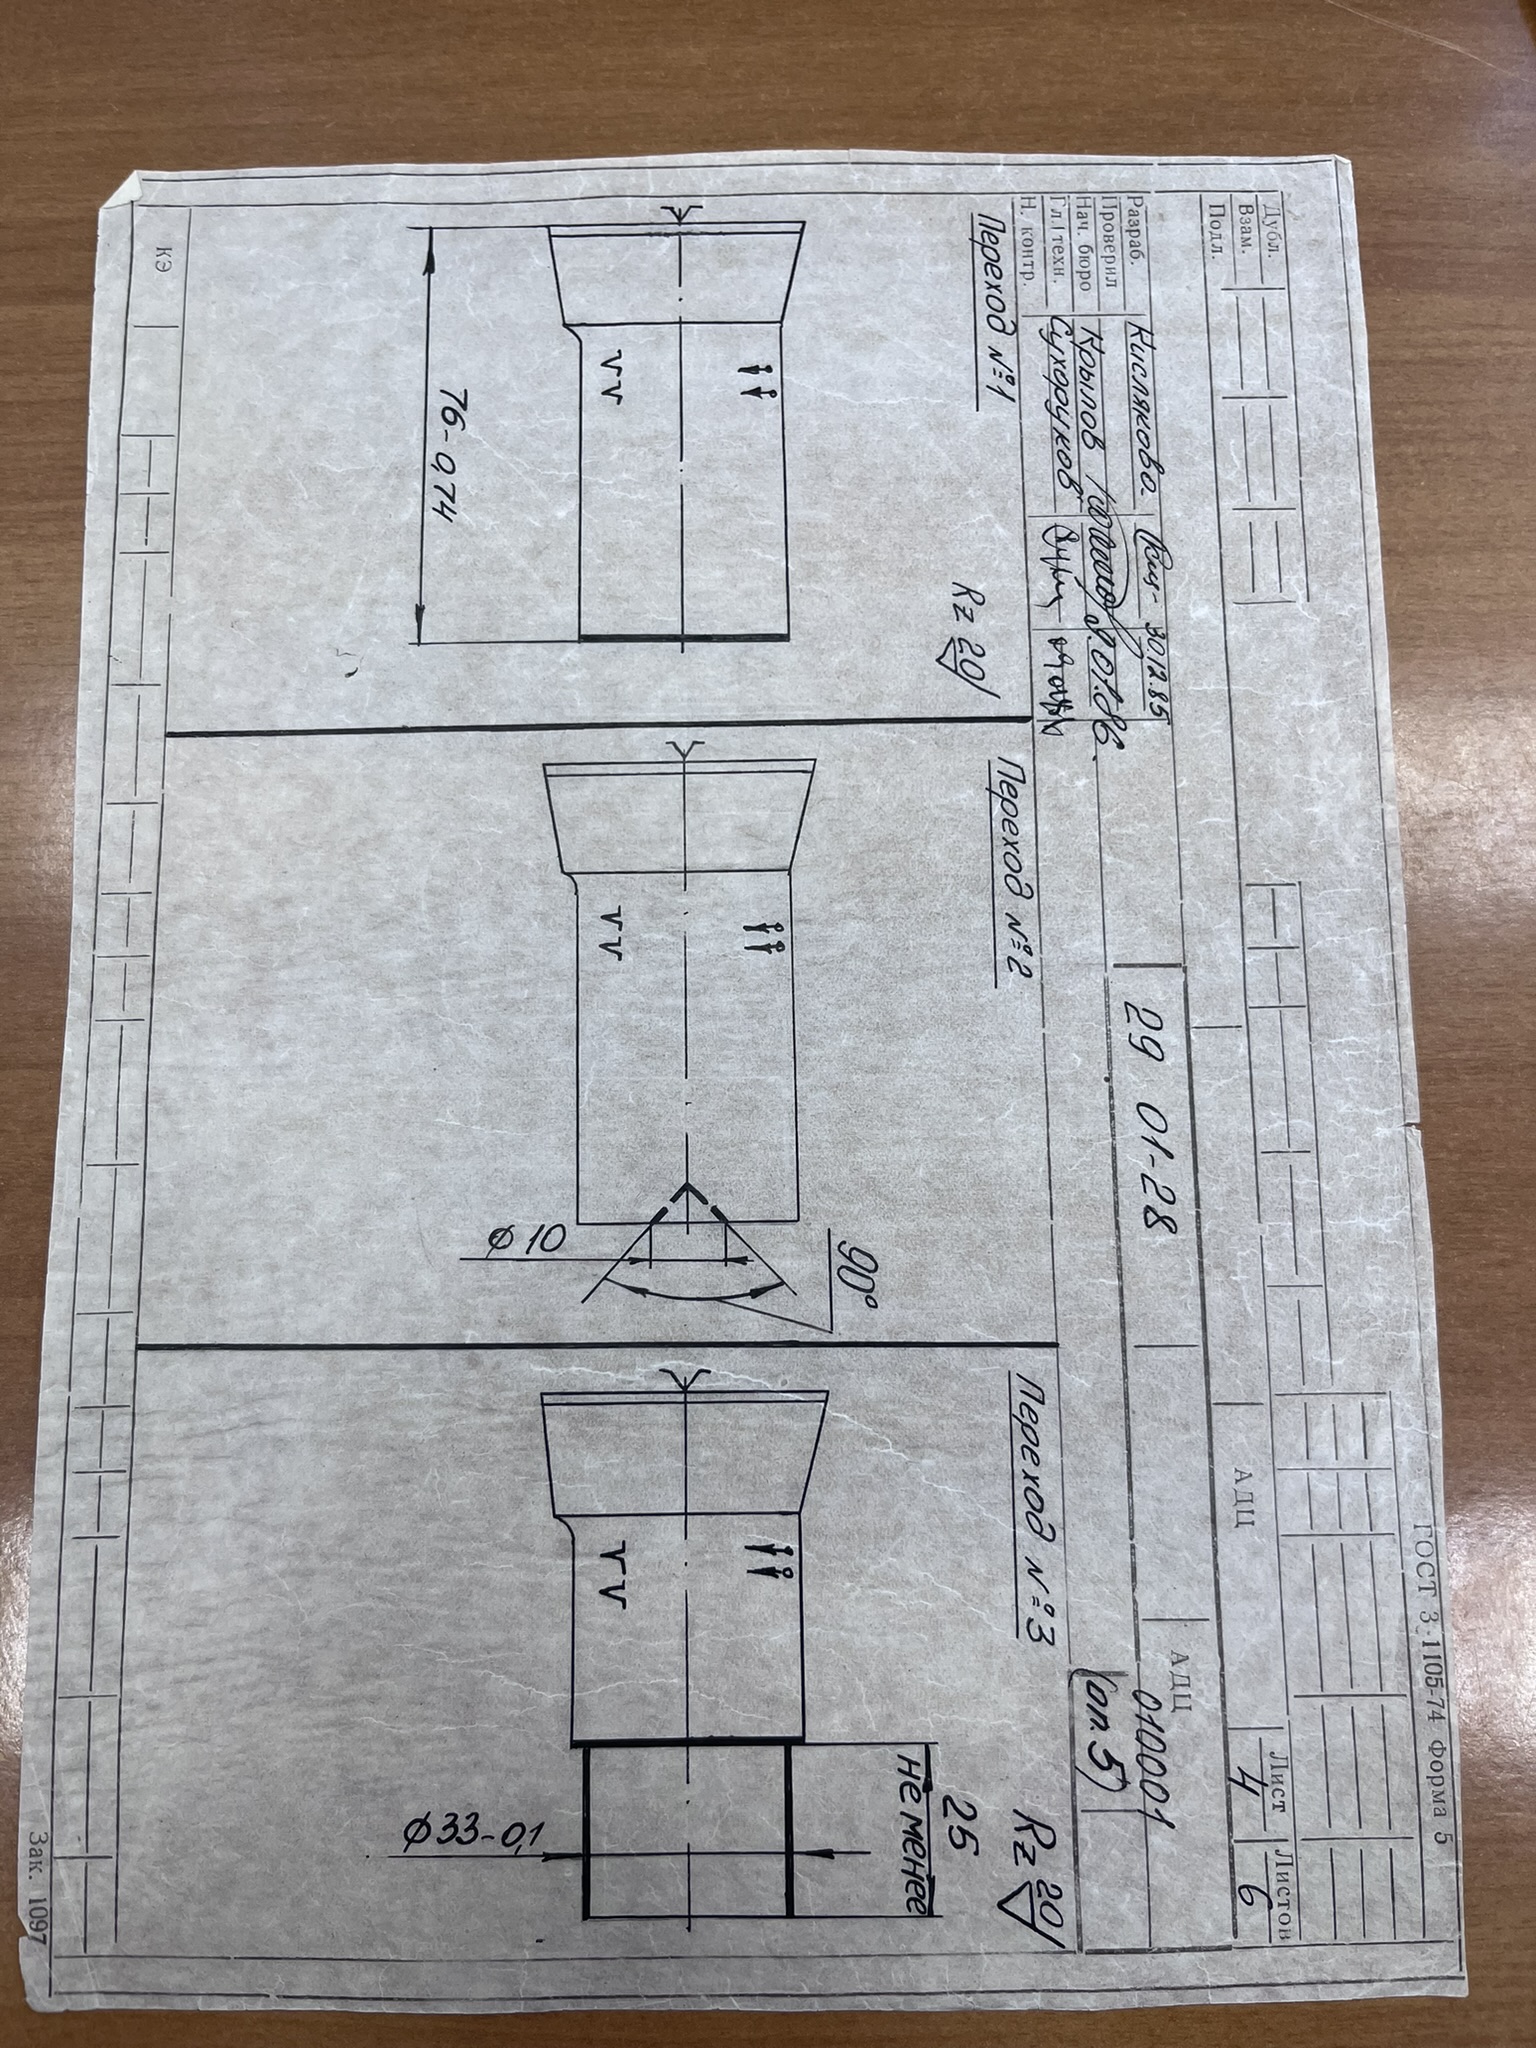 ГОСТ 3.1105-74 Форма 5
Дубл.
Взам.
Подл.
АДЦ
Лист
4
Листов
6
Разраб. Кислякова 30.12.85
Проверил
Нач. бюро Крылов 9.01.86.
Гл. техн. Сухоруков
Н. контр.
29 01-28
АДЦ
010001
(оп. 5)
Переход №1
Rz 20
76-0,74
Переход №2
90°
Ø10
Переход №3
Rz 20
25
не менее
Ø33-0,1
КЭ
Зак. 1097